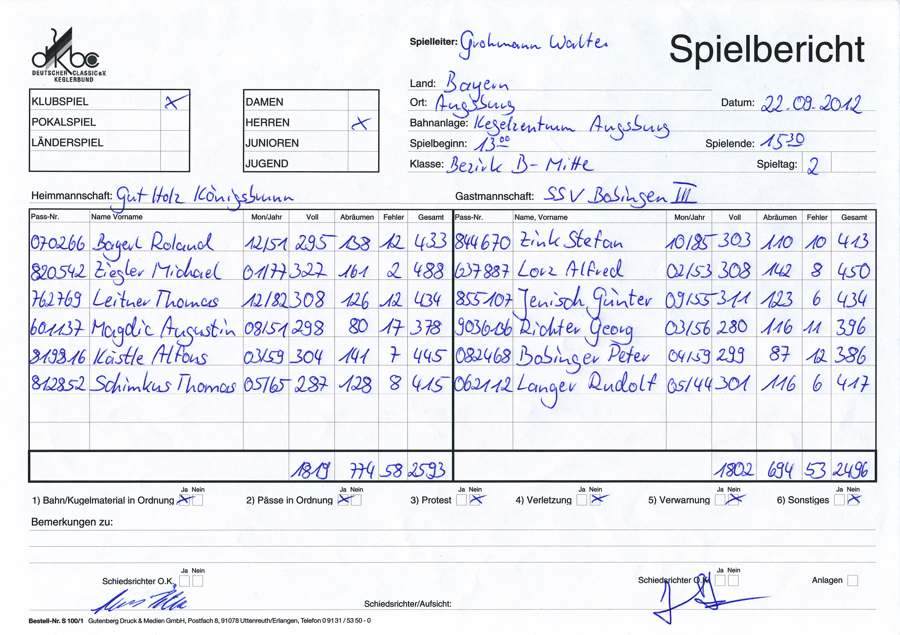 Spielleiter: Grohmann Walter
Spielbericht
dkbc
DEUTSCHER CLASSIC e.V.
KEGLERBUND
Land: Bayern
KLUBSPIEL x
DAMEN
Ort: Augsburg
Datum: 22.09.2012
POKALSPIEL
HERREN x
Bahnanlage: Kegelzentrum Augsburg
LÄNDERSPIEL
JUNIOREN
Spielbeginn: 13 00
Spielende: 15 30
JUGEND
Klasse: Bezirk B- Mitte
Spieltag: 2
Heimmannschaft: Gut Holz Königsbrunn
Gastmannschaft: SSV Bobingen III
Pass-Nr. Name Vorname Mon/Jahr Voll Abräumen Fehler Gesamt Pass-Nr. Name, Vorname Mon/Jahr Voll Abräumen Fehler Gesamt
070266 Bayerl Roland 12/51 295 138 12 433 844670 Zink Stefan 10/85 303 110 10 413
820542 Ziegler Michael 01/77 327 161 2 488 637887 Lorz Alfred 02/53 308 142 8 450
762769 Leitner Thomas 12/82 308 126 12 434 855107 Jenisch Günter 09/55 311 123 6 434
601137 Magdic Augustin 08/51 298 80 17 378 Richter Georg 03/56 280 116 11 396
819816 Kästle Alfons 03/59 304 141 7 445 082468 Bobinger Peter 04/59 299 87 12 386
812852 Schimkus Thomas 05/65 287 128 8 415 062112 Langer Rudolf 05/44 301 116 6 417
1819 774 58 2593 1802 694 53 2496
Ja Nein Ja Nein Ja Nein Ja Nein Ja Nein Ja Nein
1) Bahn/Kugelmaterial in Ordnung x 2) Pässe in Ordnung x 3) Protest x 4) Verletzung x 5) Verwarnung x 6) Sonstiges x
Bemerkungen zu:
Ja Nein Ja Nein
Schiedsrichter O.K. Schiedsrichter O.K. Anlagen
Schiedsrichter/Aufsicht:
Bestell-Nr. S 100/1 Gutenberg Druck & Medien GmbH, Postfach 8, 91078 Uttenreuth/Erlangen, Telefon 0 91 31 / 53 50 - 0